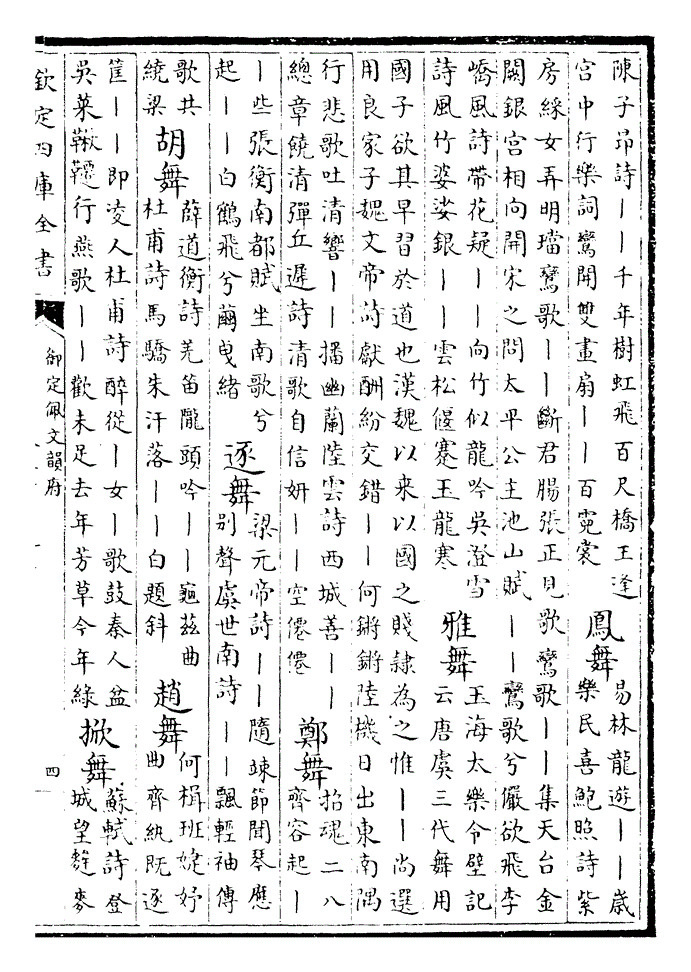 陳子昻詩丨丨千年樹虹飛百尺橋王逢
宫中行樂詞鸞開雙畫扇丨丨百霓裳
鳳舞
易林龍遊丨丨歳
樂民喜鮑照詩紫
房綵女弄明璫鸞歌丨丨斷君腸張正見歌鸞歌丨丨集天台金
闕銀宫相向開宋之問太平公主池山賦丨丨鸞歌兮儼欲飛李
嶠風詩帶花疑丨丨向竹似龍吟吳澄雪
詩風竹婆娑銀丨丨雲松偃蹇玉龍寒
雅舞
王海太樂令壁記
云唐虞三代舞用
國子欲其早習於道也漢魏以来以國之賤隷為之惟丨丨尚選
用良家子魏文帝詩獻酬紛交錯丨丨何鏘鏘陸機日出東南隅
行悲歌吐清響丨丨播幽蘭陸雲詩西城善丨丨
總章饒清彈丘遲詩清歌自信妍丨丨空僊僊
鄭舞
招魂二八
齊容起丨
丨些張衡南都賦坐南歌兮
起丨丨白鶴飛兮繭曳緒
逐舞
梁元帝詩丨丨隨竦節聞琴應
别聲虞世南詩丨丨飄輕袖傳
歌共
繞梁
胡舞
薛道衡詩羌笛隴頭吟丨丨龜兹曲
杜甫詩馬驕朱汗落丨丨白題斜
趙舞
何楫班婕妤
曲齊紈既逐
筐丨丨即凌人杜甫詩醉從丨女丨歌鼓秦人盆
吳萊鞦韆行燕歌丨丨歡未足去年芳草今年緑
掀舞
蘇軾詩登
城望麰麥
欽定四庫全書
御定佩文韻府
四